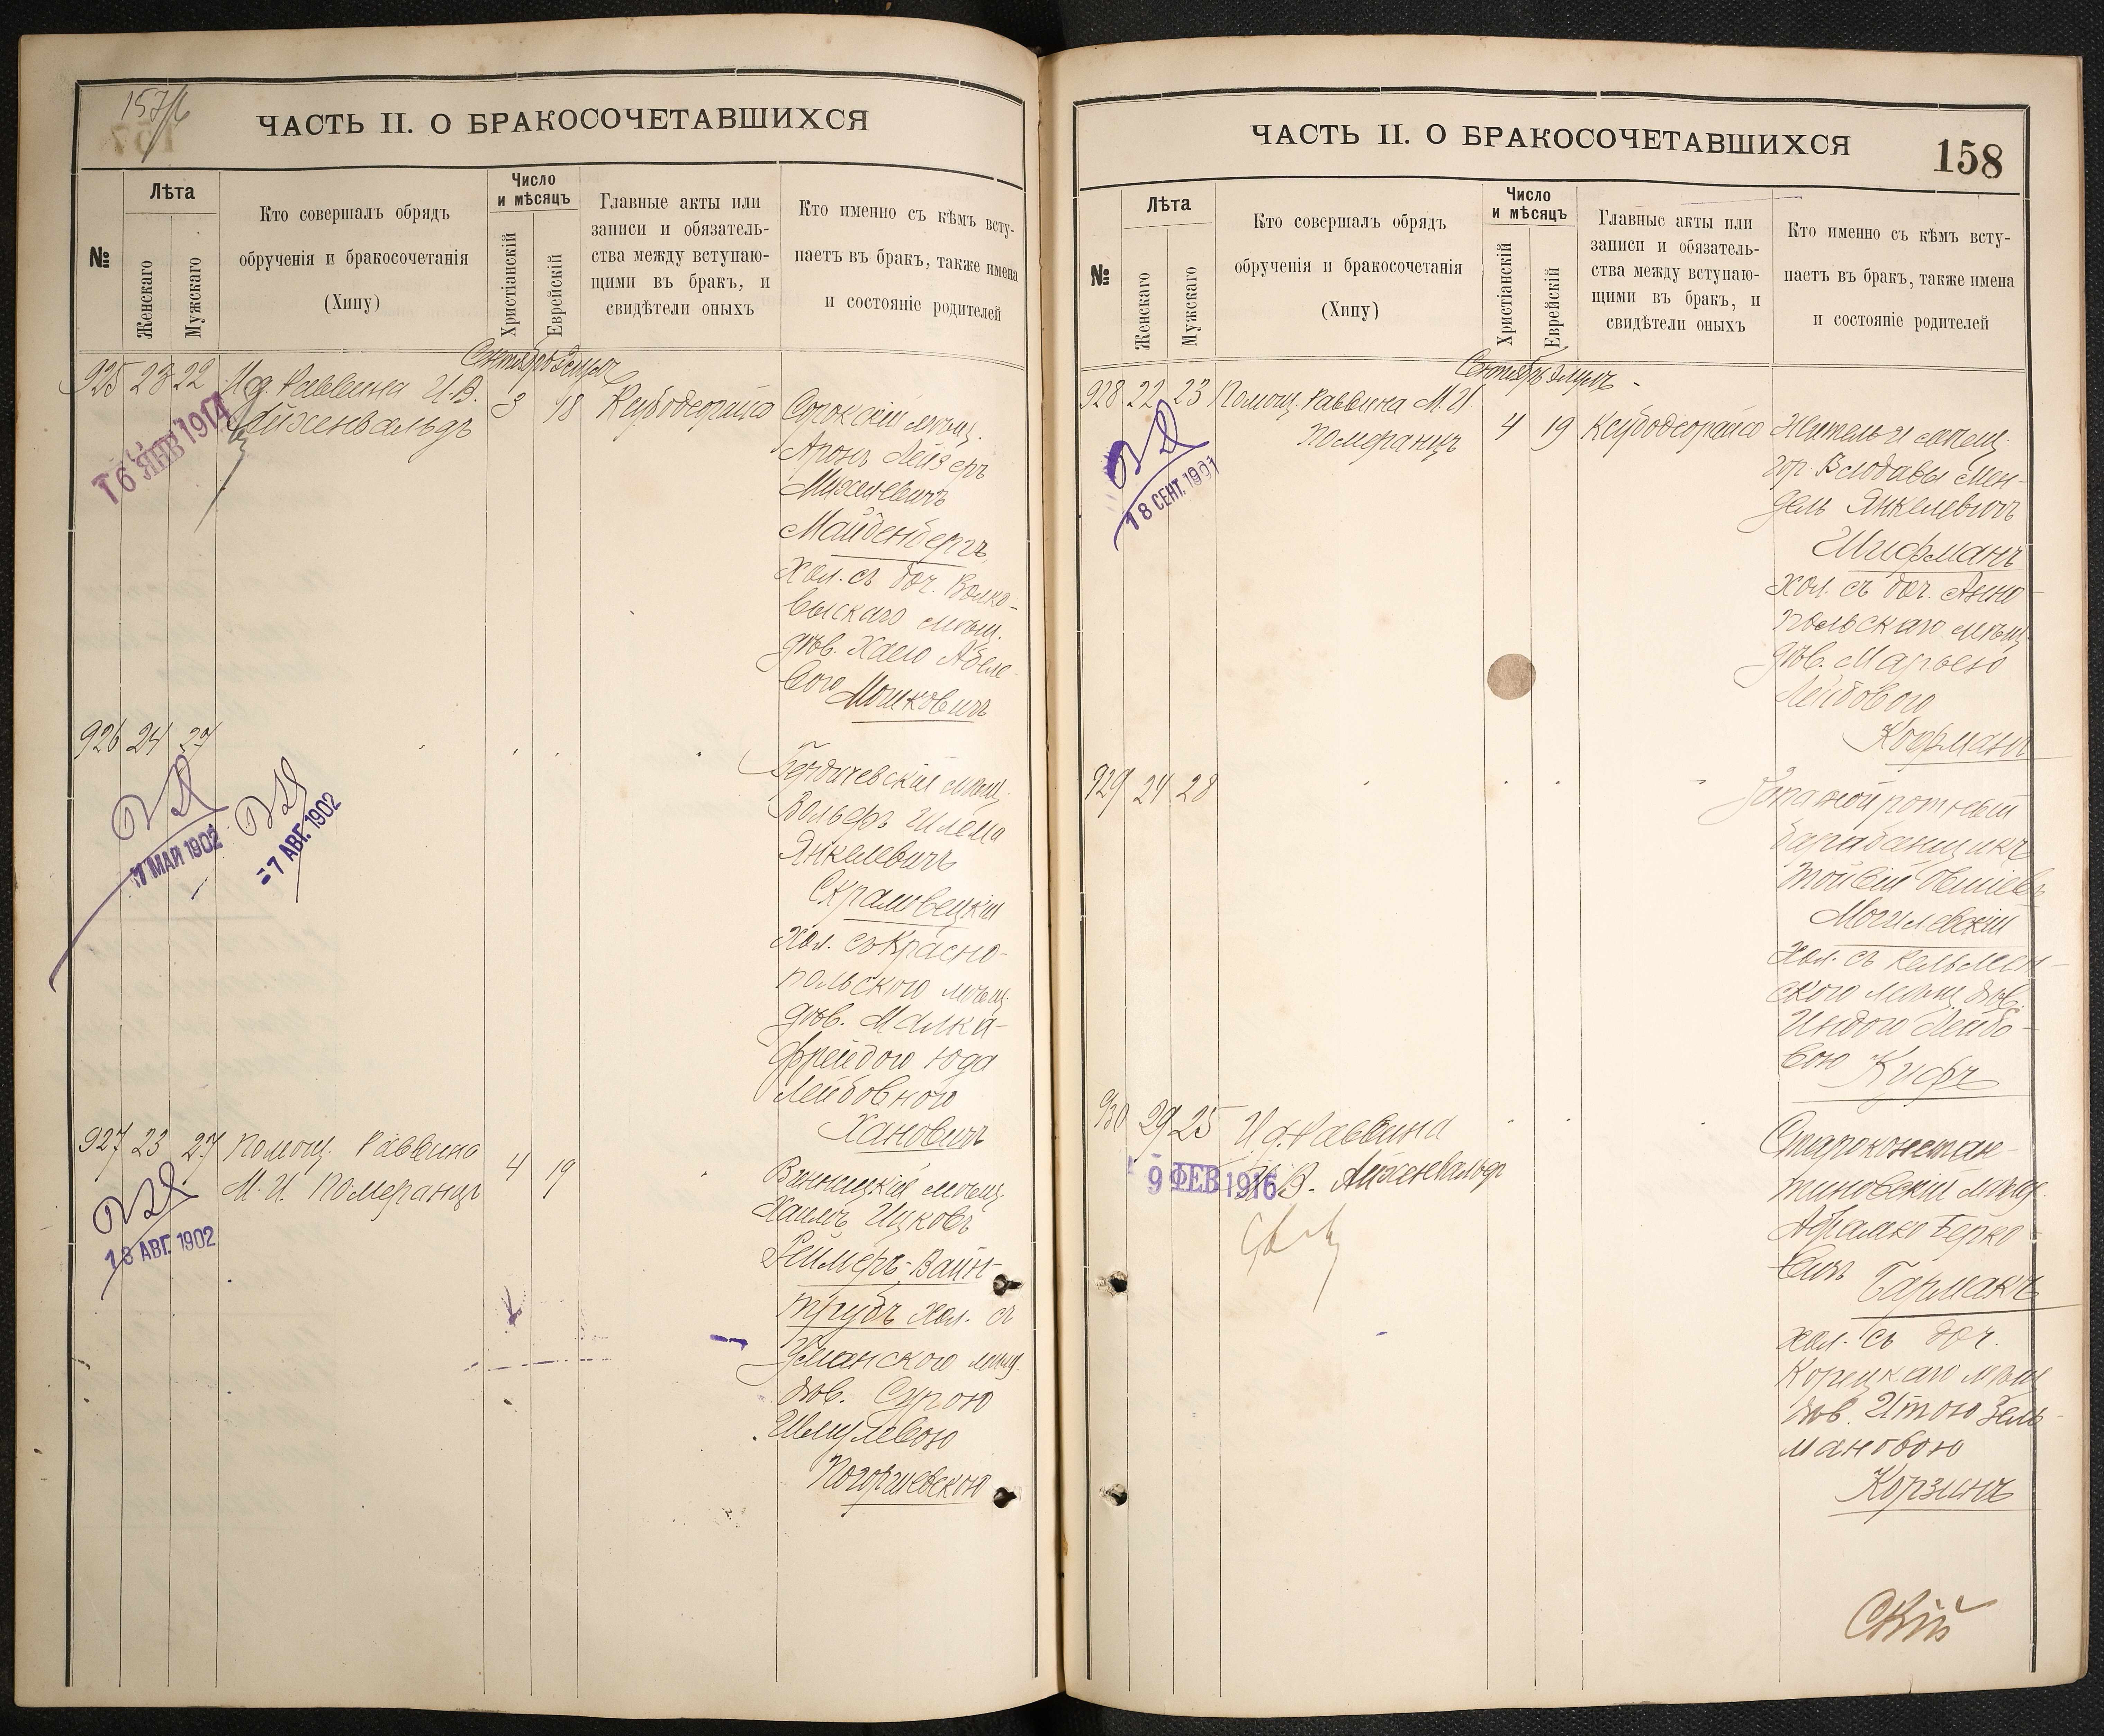 157/6
ЧАСТЬ II. О БРАКОСОЧЕТАВШИХСЯ
№
Лѣта
Женскаго
Мужскаго
Кто совершалъ обрядъ
обрученія и бракосочетанія
(Хипу)
Число
и мѣсяцъ
Христіанскій
Еврейскій
Главные акты или
записи и обязатель-
ства между вступаю-
щими въ бракъ, и
свидѣтели оныхъ
Кто именно съ кѣмъ всту-
паетъ въ бракъ, также имена
и состояніе родителей
Сентябрь Элулъ
925 23 22 И. д. Раввина И. В.
Айзенвальдъ
3 18 Ксубодеорайсо
Сорокскій мѣщ.
Аронъ Лейзеръ
Михелевичъ
Майденбергъ
хол. съ доч. Волко-
выскаго мѣщ.
дѣв. Хаею Абеле-
вою Мошковичъ
16 ЯНВ 1914
926 24 27
Бердичевскій мѣщ.
Вольфъ Шлема
Янкелевичъ
Скрамовецкій
хол. съ Красно-
польскою мѣщ.
дѣв. Малка-
Фрейдою Юда
Лейбовною
Хановичъ
7 МАЙ 1902
7 АВГ. 1902
927 23 27 Помощ. Раввина
М. И. Померанцъ
4 19
Винницкій мѣщ.
Хаимъ Ицковъ
Геймеръ-Вайн-
трубъ хол. съ
Уманскою мѣщ.
дѣв. Сурою
Шмулевою
Погоржевскою
13 АВГ. 1902
ЧАСТЬ II. О БРАКОСОЧЕТАВШИХСЯ
158
№
Лѣта
Женскаго
Мужскаго
Кто совершалъ обрядъ
обрученія и бракосочетанія
(Хипу)
Число
и мѣсяцъ
Христіанскій
Еврейскій
Главные акты или
записи и обязатель-
ства между вступаю-
щими въ бракъ, и
свидѣтели оныхъ
Кто именно съ кѣмъ всту-
паетъ въ бракъ, также имена
и состояніе родителей
Сентябрь Элулъ
928 22 23 Помощ. Раввина М. И.
Померанцъ
4 19 Ксубодеорайсо
Житель
гор. Влодавы Мен-
дель Янкелевичъ
Шифманъ
хол. съ доч. Анно-
польскаго мѣщ.
дѣв. Марьею
Лейбовою
Кофманъ
18 СЕНТ. 1901
929 24 28
Запасной ротный
барабанщикъ
Тойвій
Могилевскій
хол. съ Кельмен-
скою мѣщ. дѣв.
Индою Лейбо-
вою Куфъ
930 29 25 И. д. Раввина
И. В. Айзенвальдъ
Староконстан-
тиновскій мѣщ.
Абрамко Берко-
вичъ Бармакъ
хол. съ доч.
Корецкаго мѣщ.
дѣв. Итою Зель-
мановою
Корзинъ
9 ФЕВ 1916
Скій